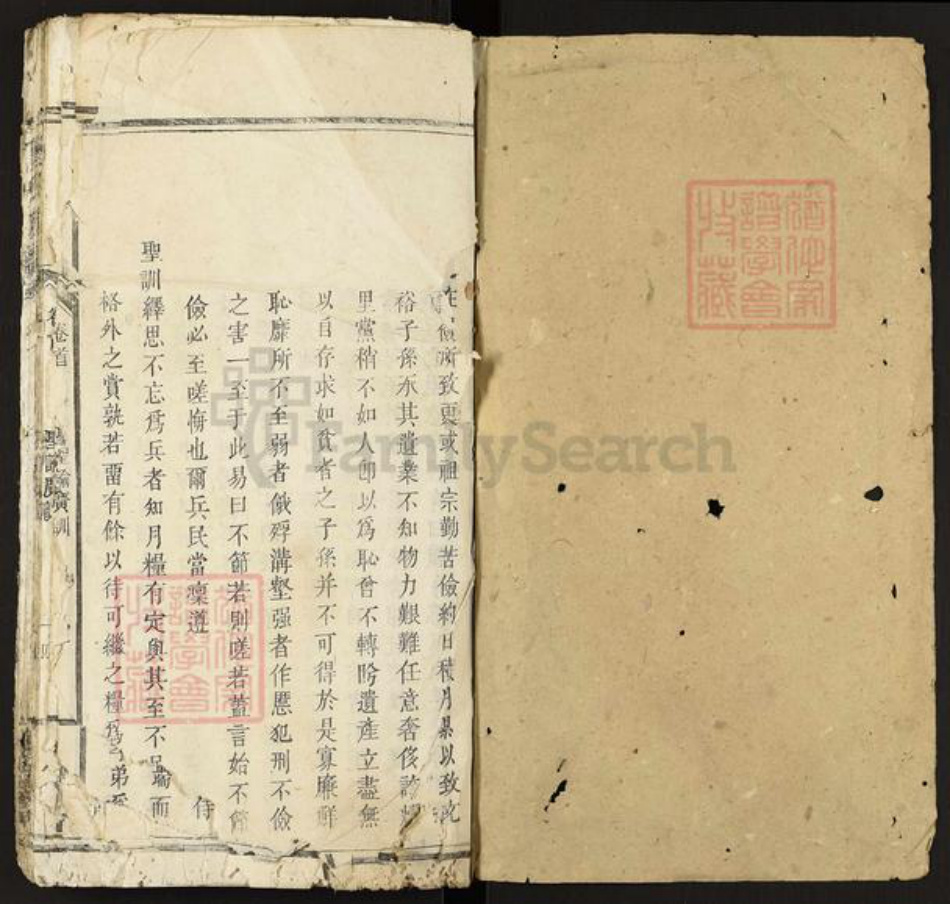 儉所致更或祖宗勤苦儉約日積月累以致充
裕子孫承其遺業不知物力艱難任意奢侈誇耀
里黨稍不如人即以爲恥曾不轉盻遺產立盡無
以自存求如貧者之子孫并不可得於是寡廉鮮
恥靡所不至弱者餓殍溝壑强者作慝犯刑不儉
之害一至于此易曰不節若則嗟若蓋言始不節
儉必至嗟悔也爾兵民當凜遵
聖訓繹思不忘爲兵者知月糧有定與其至不足而
格外之賞孰若留有餘以待可繼之糧爲
弟
侍
卷首
聖諭廣訓
譜學會
收藏
FamilySearch